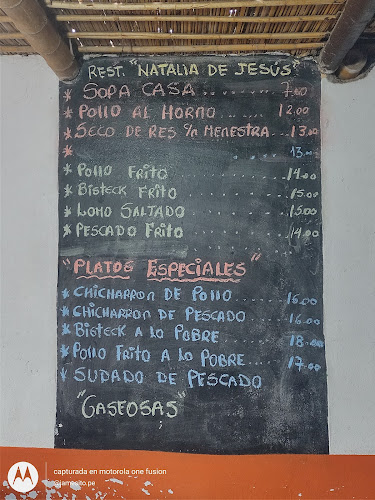 REST. "NATALIA DE JESÚS"
* SOPA CASA ......... 7.00
* POLLO AL HORNO ........ 12.00
* SECO DE RES C/N MENESTRA... 13.00
* 13.00
* POLLO FRITO ........ 14.00
* BISTECK FRITO ........ 15.00
* LOMO SALTADO ........ 15.00
* PESCADO FRITO ........ 14.00
"PLATOS ESPECIALES"
* CHICHARRON DE POLLO ........ 16.00
* CHICHARRON DE PESCADO ...... 16.00
* BISTECK A LO POBRE ...... 18.00
* POLLO FRITO A LO POBRE.... 17.00
* SUDADO DE PESCADO
"GASEOSAS"
capturada en motorola one fusion